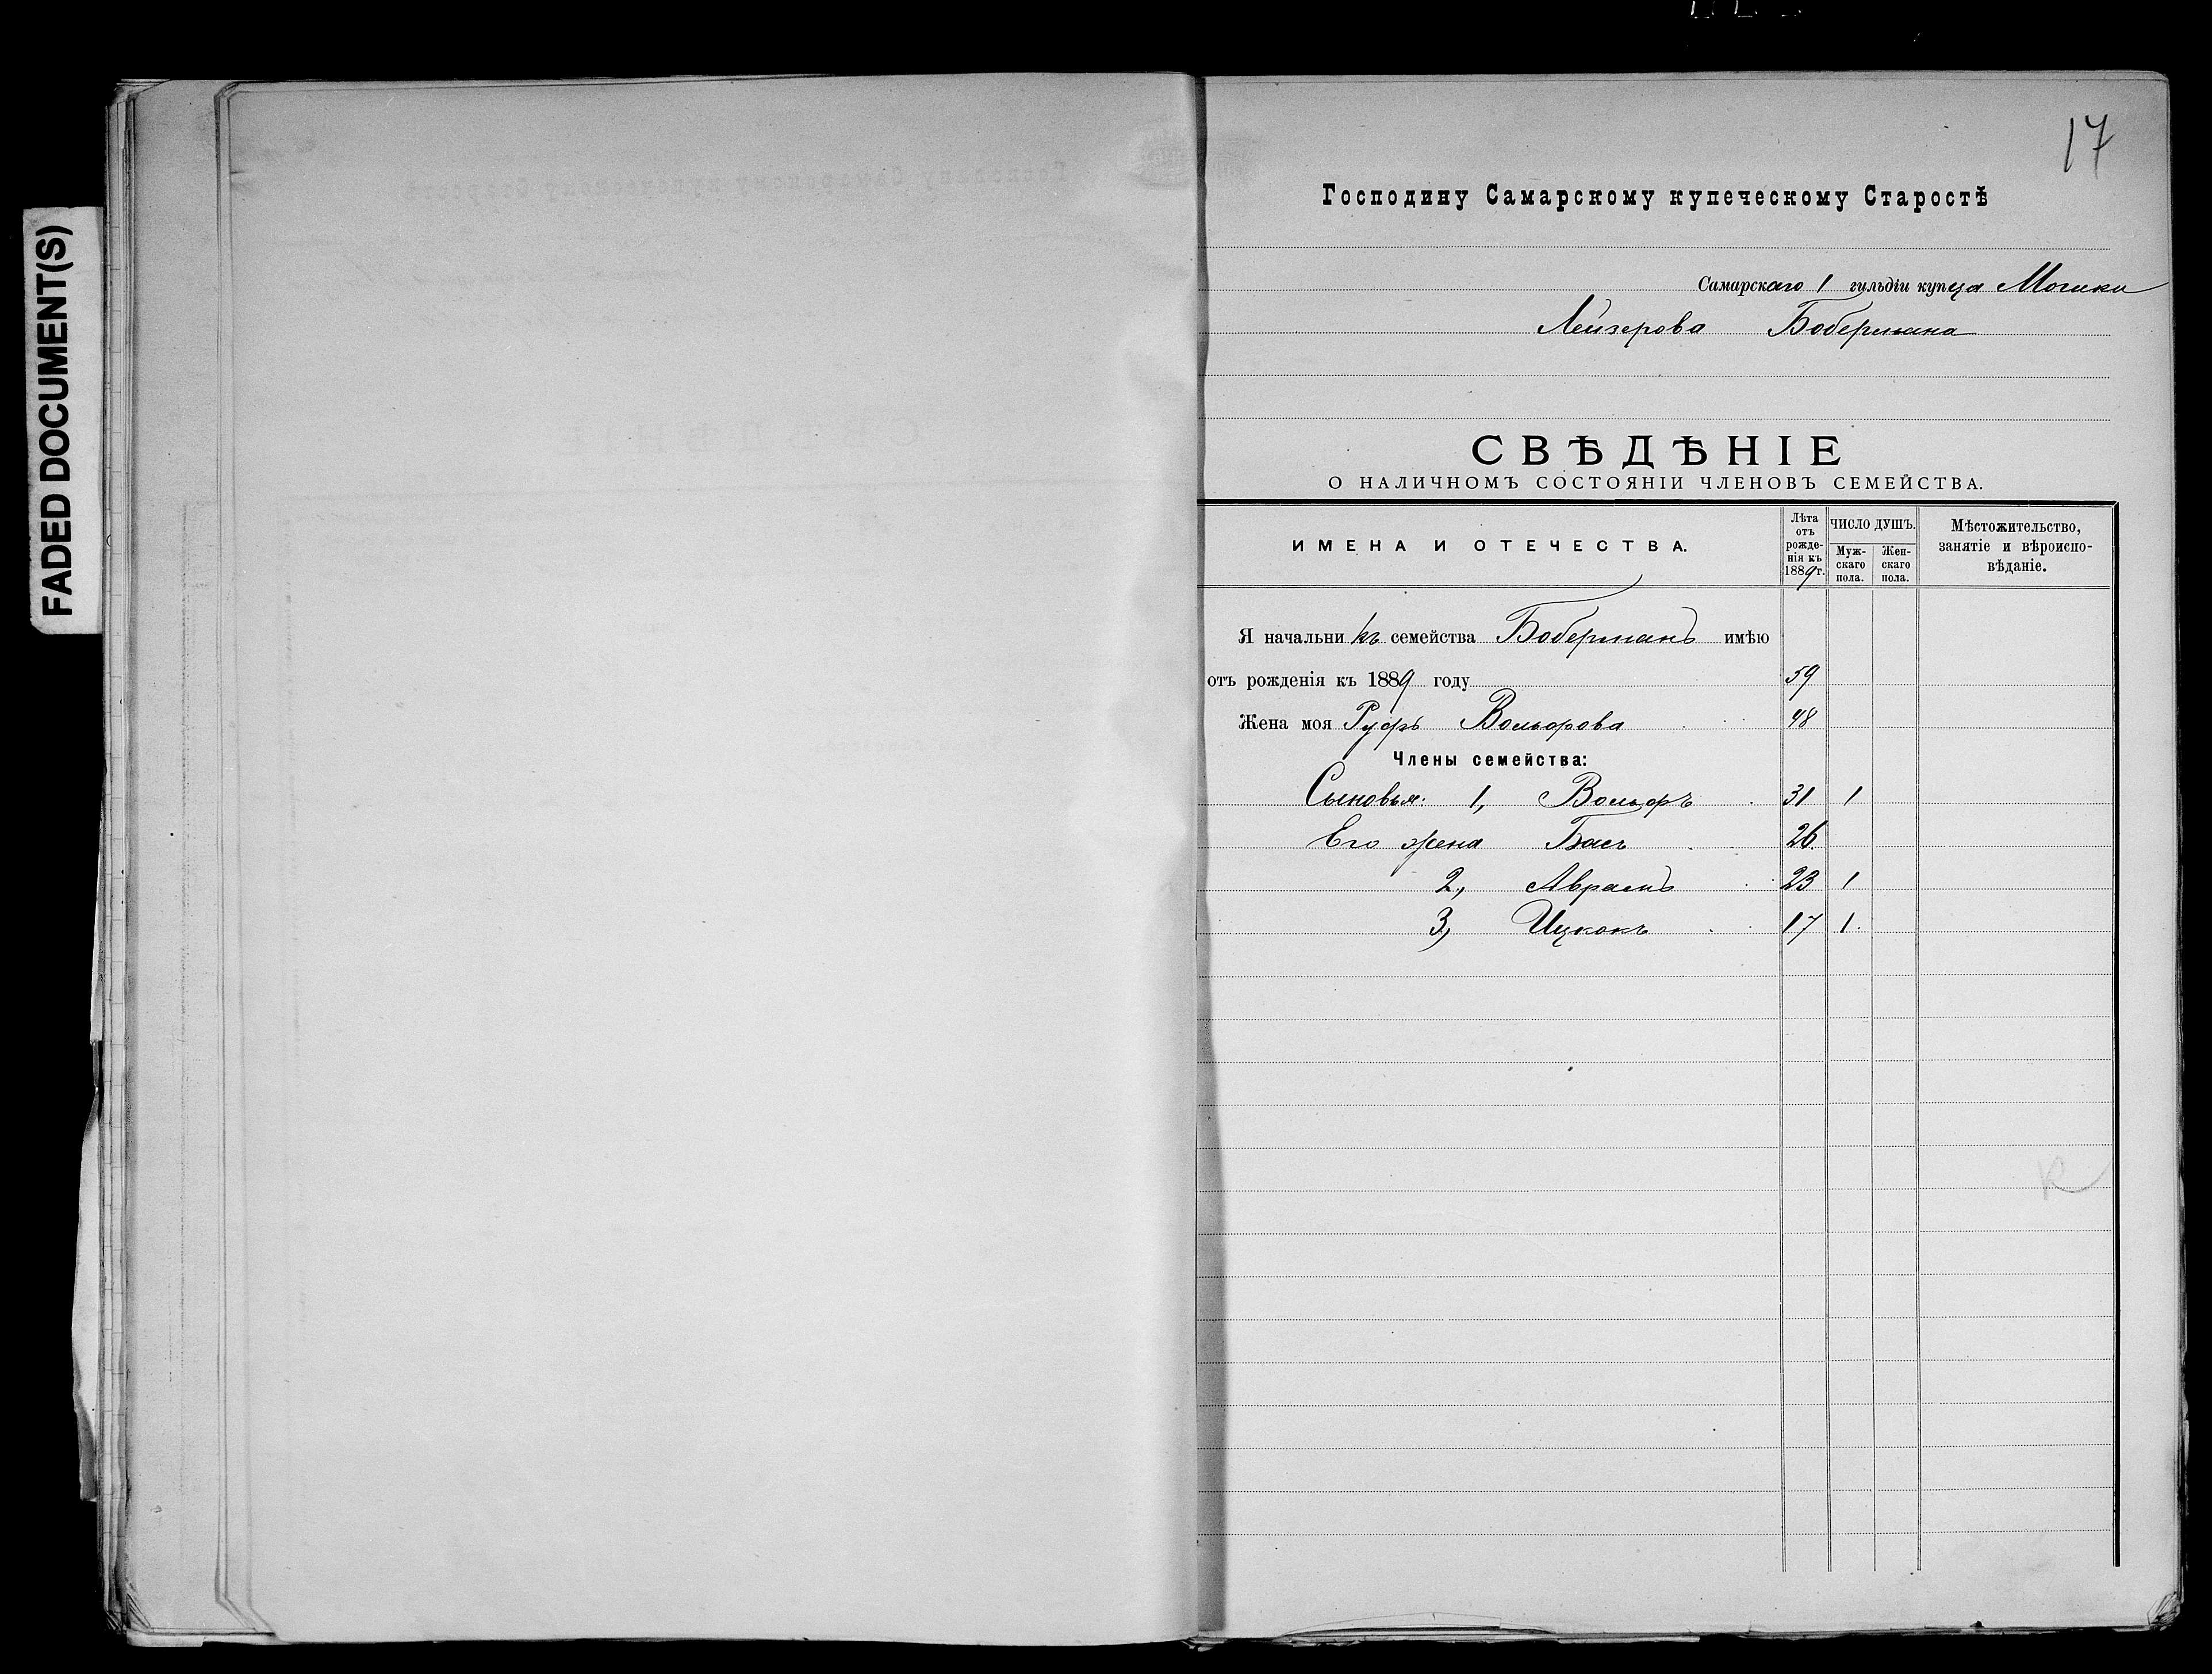 FADED DOCUMENT(S)
17
Господину Самарскому купеческому Старостѣ
Самарскаго 1 гильдіи купца Мошки
Лейзерова Бобермана
СВѢДѢНІЕ
О НАЛИЧНОМЪ СОСТОЯНІИ ЧЛЕНОВЪ СЕМЕЙСТВА.
ИМЕНА И ОТЕЧЕСТВА.
Лѣта
отъ
рожде-
нія къ
1889 г.
ЧИСЛО ДУШЪ.
Муж-
скаго
пола.
Жен-
скаго
пола.
Мѣстожительство,
занятіе и вѣроиспо-
вѣданіе.
Я начальникъ семейства Боберманъ имѣю
отъ рожденія къ 1889 году 59
Жена моя Руфь Вольфова 48
Члены семейства:
Сыновья: 1, Вольфъ 31 1
Его жена Бася 26
2, Аврамъ 23 1
3, Ицкокъ 17 1.